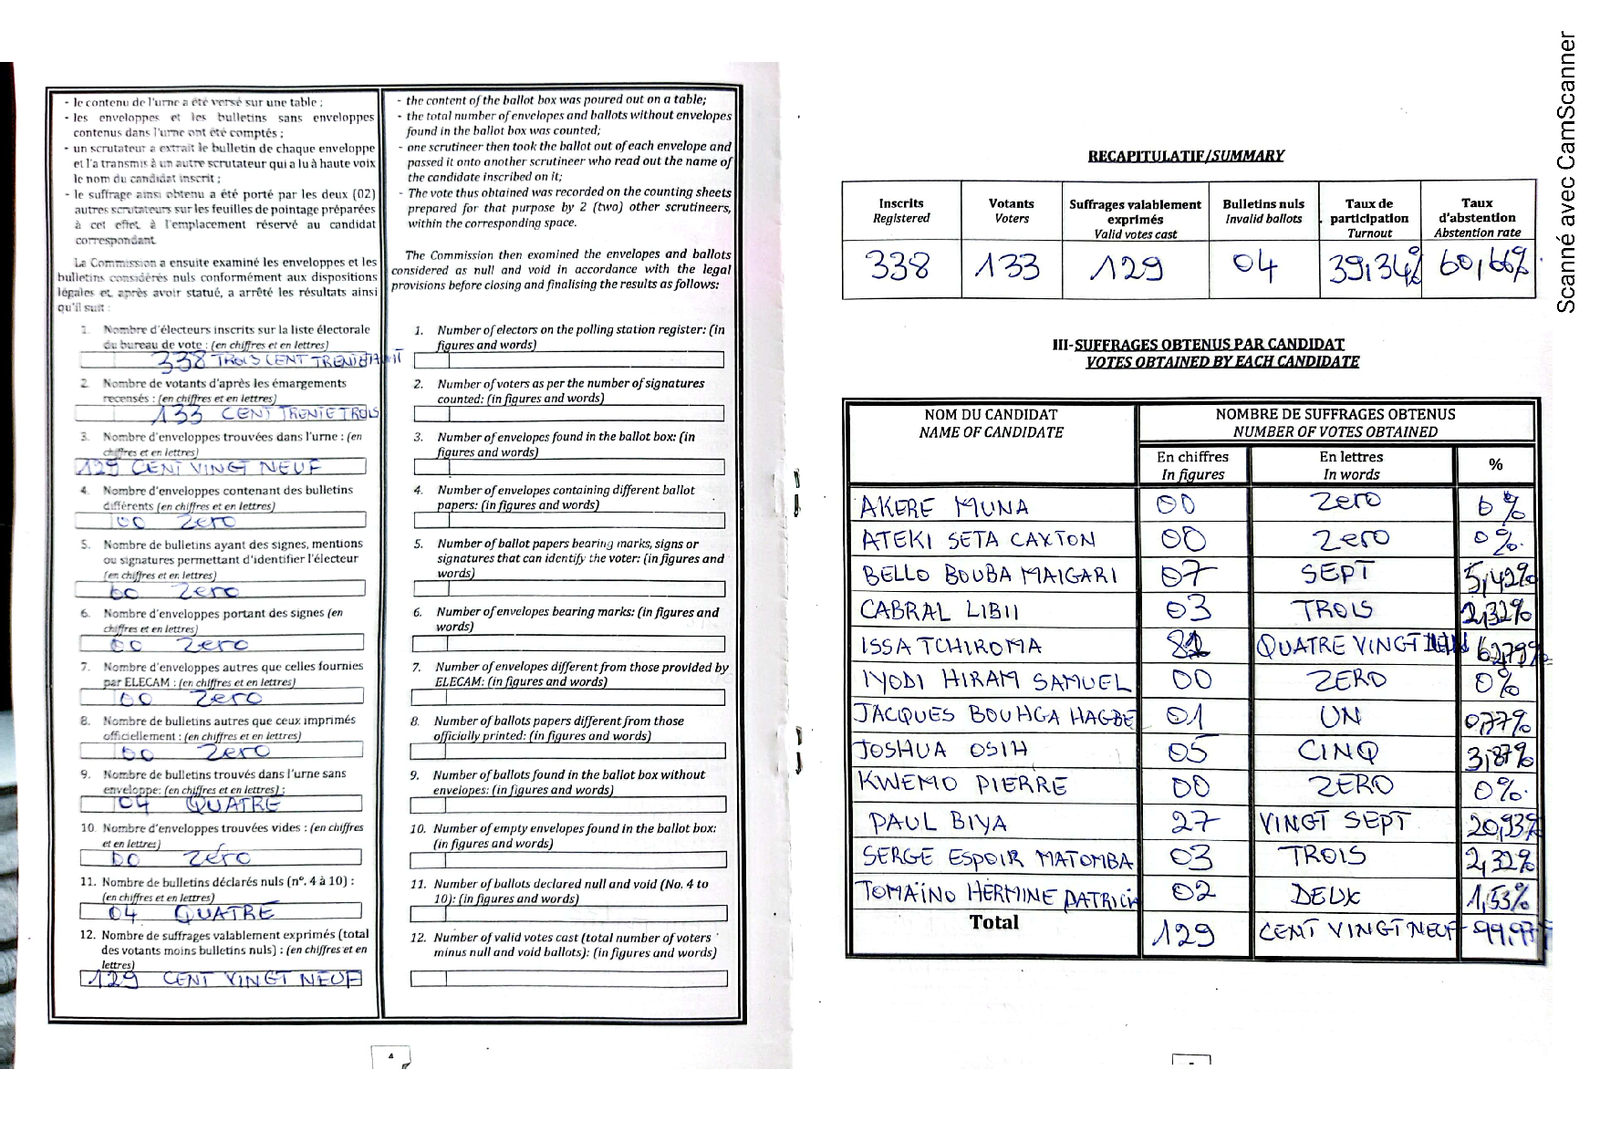 - le contenu de l'urne a été versé sur une table ;
- les enveloppes et les bulletins sans enveloppes
contenus dans l'urne ont été comptés ;
- un scrutateur a extrait le bulletin de chaque enveloppe
et l'a transmis à un autre scrutateur qui a lu à haute voix
le nom du candidat inscrit ;
- le suffrage ainsi obtenu a été porté par les deux (02)
autres scrutateurs sur les feuilles de pointage préparées
à cet effet à l'emplacement réservé au candidat
correspondant.
La Commission a ensuite examiné les enveloppes et les
bulletins considérés nuls conformément aux dispositions
légales et, après avoir statué, a arrêté les résultats ainsi
qu'il suit :
1. Nombre d'électeurs inscrits sur la liste électorale
du bureau de vote : (en chiffres et en lettres)
338 TROIS CENT TRENTE HUIT
2. Nombre de votants d'après les émargements
recensés : (en chiffres et en lettres)
133 CENT TRENTE TROIS
3. Nombre d'enveloppes trouvées dans l'urne : (en
chiffres et en lettres)
129 CENT VINGT NEUF
4. Nombre d'enveloppes contenant des bulletins
différents (en chiffres et en lettres)
00 Zero
5. Nombre de bulletins ayant des signes, mentions
ou signatures permettant d'identifier l'électeur
(en chiffres et en lettres)
00 Zero
6. Nombre d'enveloppes portant des signes (en
chiffres et en lettres)
00 Zero
7. Nombre d'enveloppes autres que celles fournies
par ELECAM : (en chiffres et en lettres)
00 Zero
8. Nombre de bulletins autres que ceux imprimés
officiellement : (en chiffres et en lettres)
00 Zero
9. Nombre de bulletins trouvés dans l'urne sans
enveloppe: (en chiffres et en lettres) :
04 QUATRE
10. Nombre d'enveloppes trouvées vides : (en chiffres
et en lettres)
00 Zéro
11. Nombre de bulletins déclarés nuls (n°. 4 à 10) :
(en chiffres et en lettres)
04 QUATRE
12. Nombre de suffrages valablement exprimés (total
des votants moins bulletins nuls) : (en chiffres et en
lettres)
129 CENT VINGT NEUF
- the content of the ballot box was poured out on a table;
- the total number of envelopes and ballots without envelopes
found in the ballot box was counted;
- one scrutineer then took the ballot out of each envelope and
passed it onto another scrutineer who read out the name of
the candidate inscribed on it;
- The vote thus obtained was recorded on the counting sheets
prepared for that purpose by 2 (two) other scrutineers,
within the corresponding space.
The Commission then examined the envelopes and ballots
considered as null and void in accordance with the legal
provisions before closing and finalising the results as follows:
1. Number of electors on the polling station register: (in
figures and words)
2. Number of voters as per the number of signatures
counted: (in figures and words)
3. Number of envelopes found in the ballot box: (in
figures and words)
4. Number of envelopes containing different ballot
papers: (in figures and words)
5. Number of ballot papers bearing marks, signs or
signatures that can identify the voter: (in figures and
words)
6. Number of envelopes bearing marks: (in figures and
words)
7. Number of envelopes different from those provided by
ELECAM: (in figures and words)
8. Number of ballots papers different from those
officially printed: (in figures and words)
9. Number of ballots found in the ballot box without
envelopes: (in figures and words)
10. Number of empty envelopes found in the ballot box:
(in figures and words)
11. Number of ballots declared null and void (No. 4 to
10): (in figures and words)
12. Number of valid votes cast (total number of voters
minus null and void ballots): (in figures and words)
4
RECAPITULATIF/SUMMARY
Inscrits Registered Votants Voters Suffrages valablement exprimés Valid votes cast Bulletins nuls Invalid ballots Taux de participation Turnout Taux d'abstention Abstention rate
338 133 129 04 39,34% 60,66%
III-SUFFRAGES OBTENUS PAR CANDIDAT
VOTES OBTAINED BY EACH CANDIDATE
NOM DU CANDIDAT NOMBRE DE SUFFRAGES OBTENUS
NAME OF CANDIDATE NUMBER OF VOTES OBTAINED
En chiffres En lettres %
In figures In words
AKERE MUNA 00 Zero 0%
ATEKI SETA CAXTON 00 Zero 0%.
BELLO BOUBA MAIGARI 07 SEPT 5,42%
CABRAL LIBII 03 TROIS 2,32%
ISSA TCHIROMA QUATRE VINGT 62,79%
IYODI HIRAM SAMUEL 00 ZERO 0%
JACQUES BOUHGA HAGBE 01 UN 0,77%
JOSHUA OSIH 05 CINQ 3,87%
KWEMO PIERRE 00 ZERO 0%.
PAUL BIYA 27 VINGT SEPT 20,93%
SERGE ESPOIR MATOMBA 03 TROIS 2,32%
TOMAÏNO HERMINE PATRICIA 02 DEUX 1,53%
Total 129 CENT VINGT NEUF
Scanné avec CamScanner